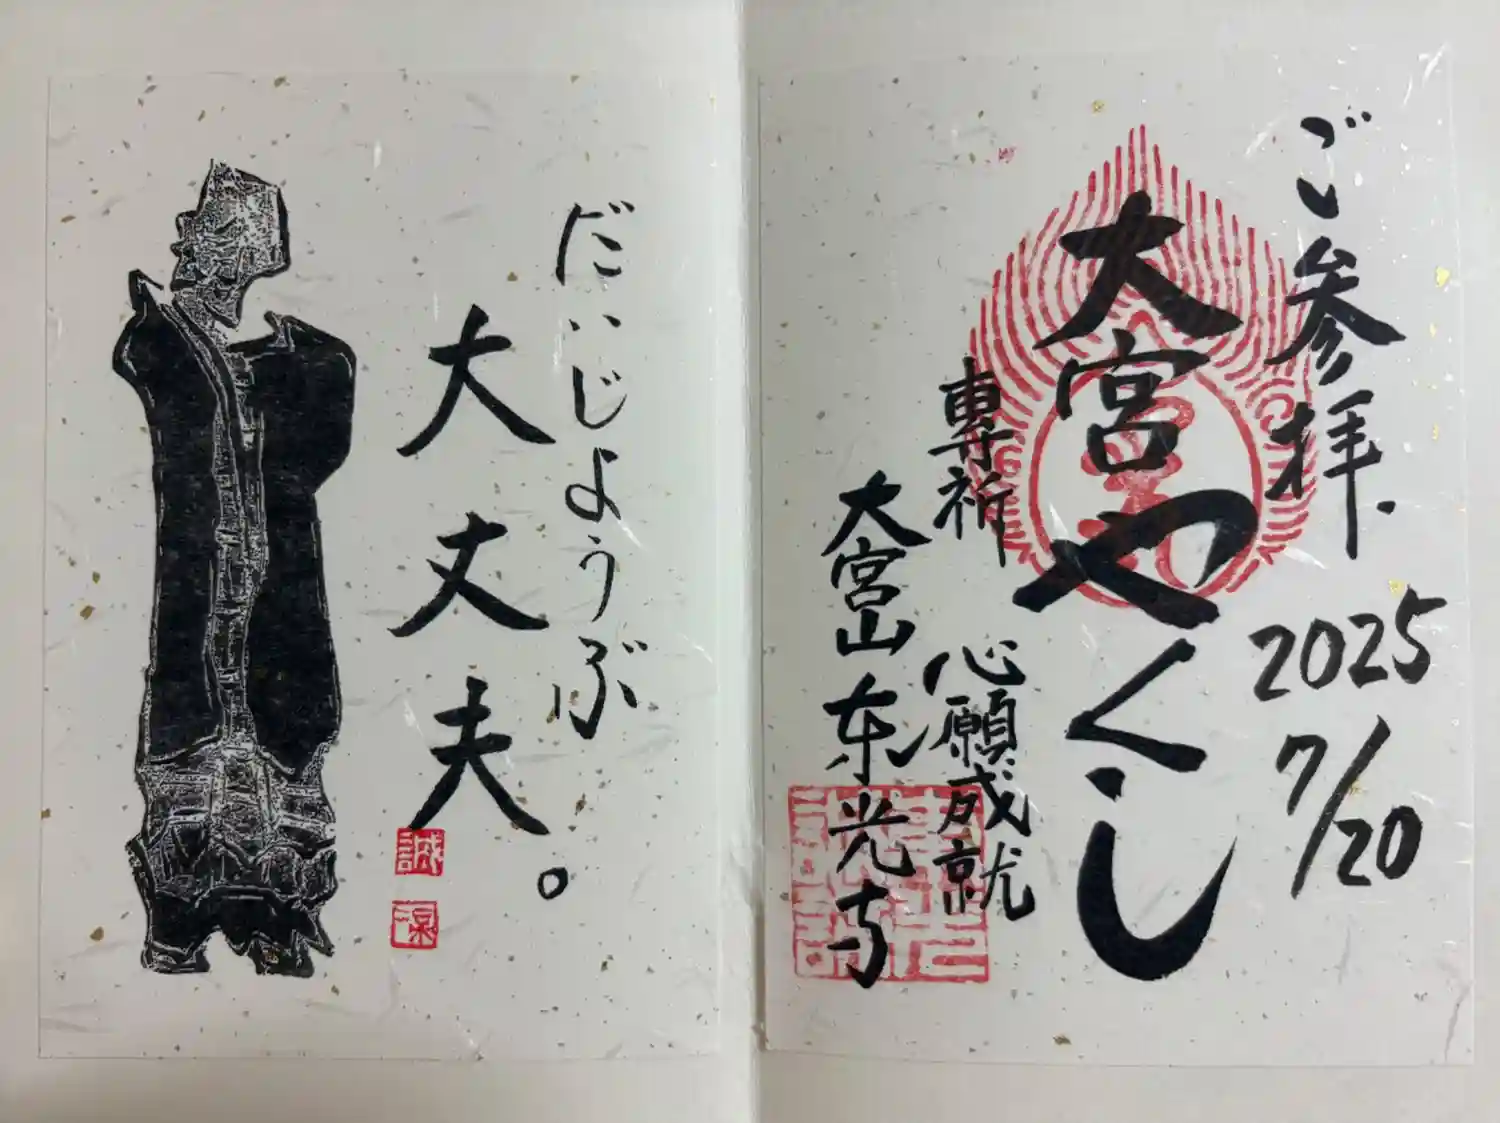 ご参拝.
2025
7/20
大宮やくし
專祈 心願成就
大宮山 東光寺
だいじょうぶ
大丈夫。
誠